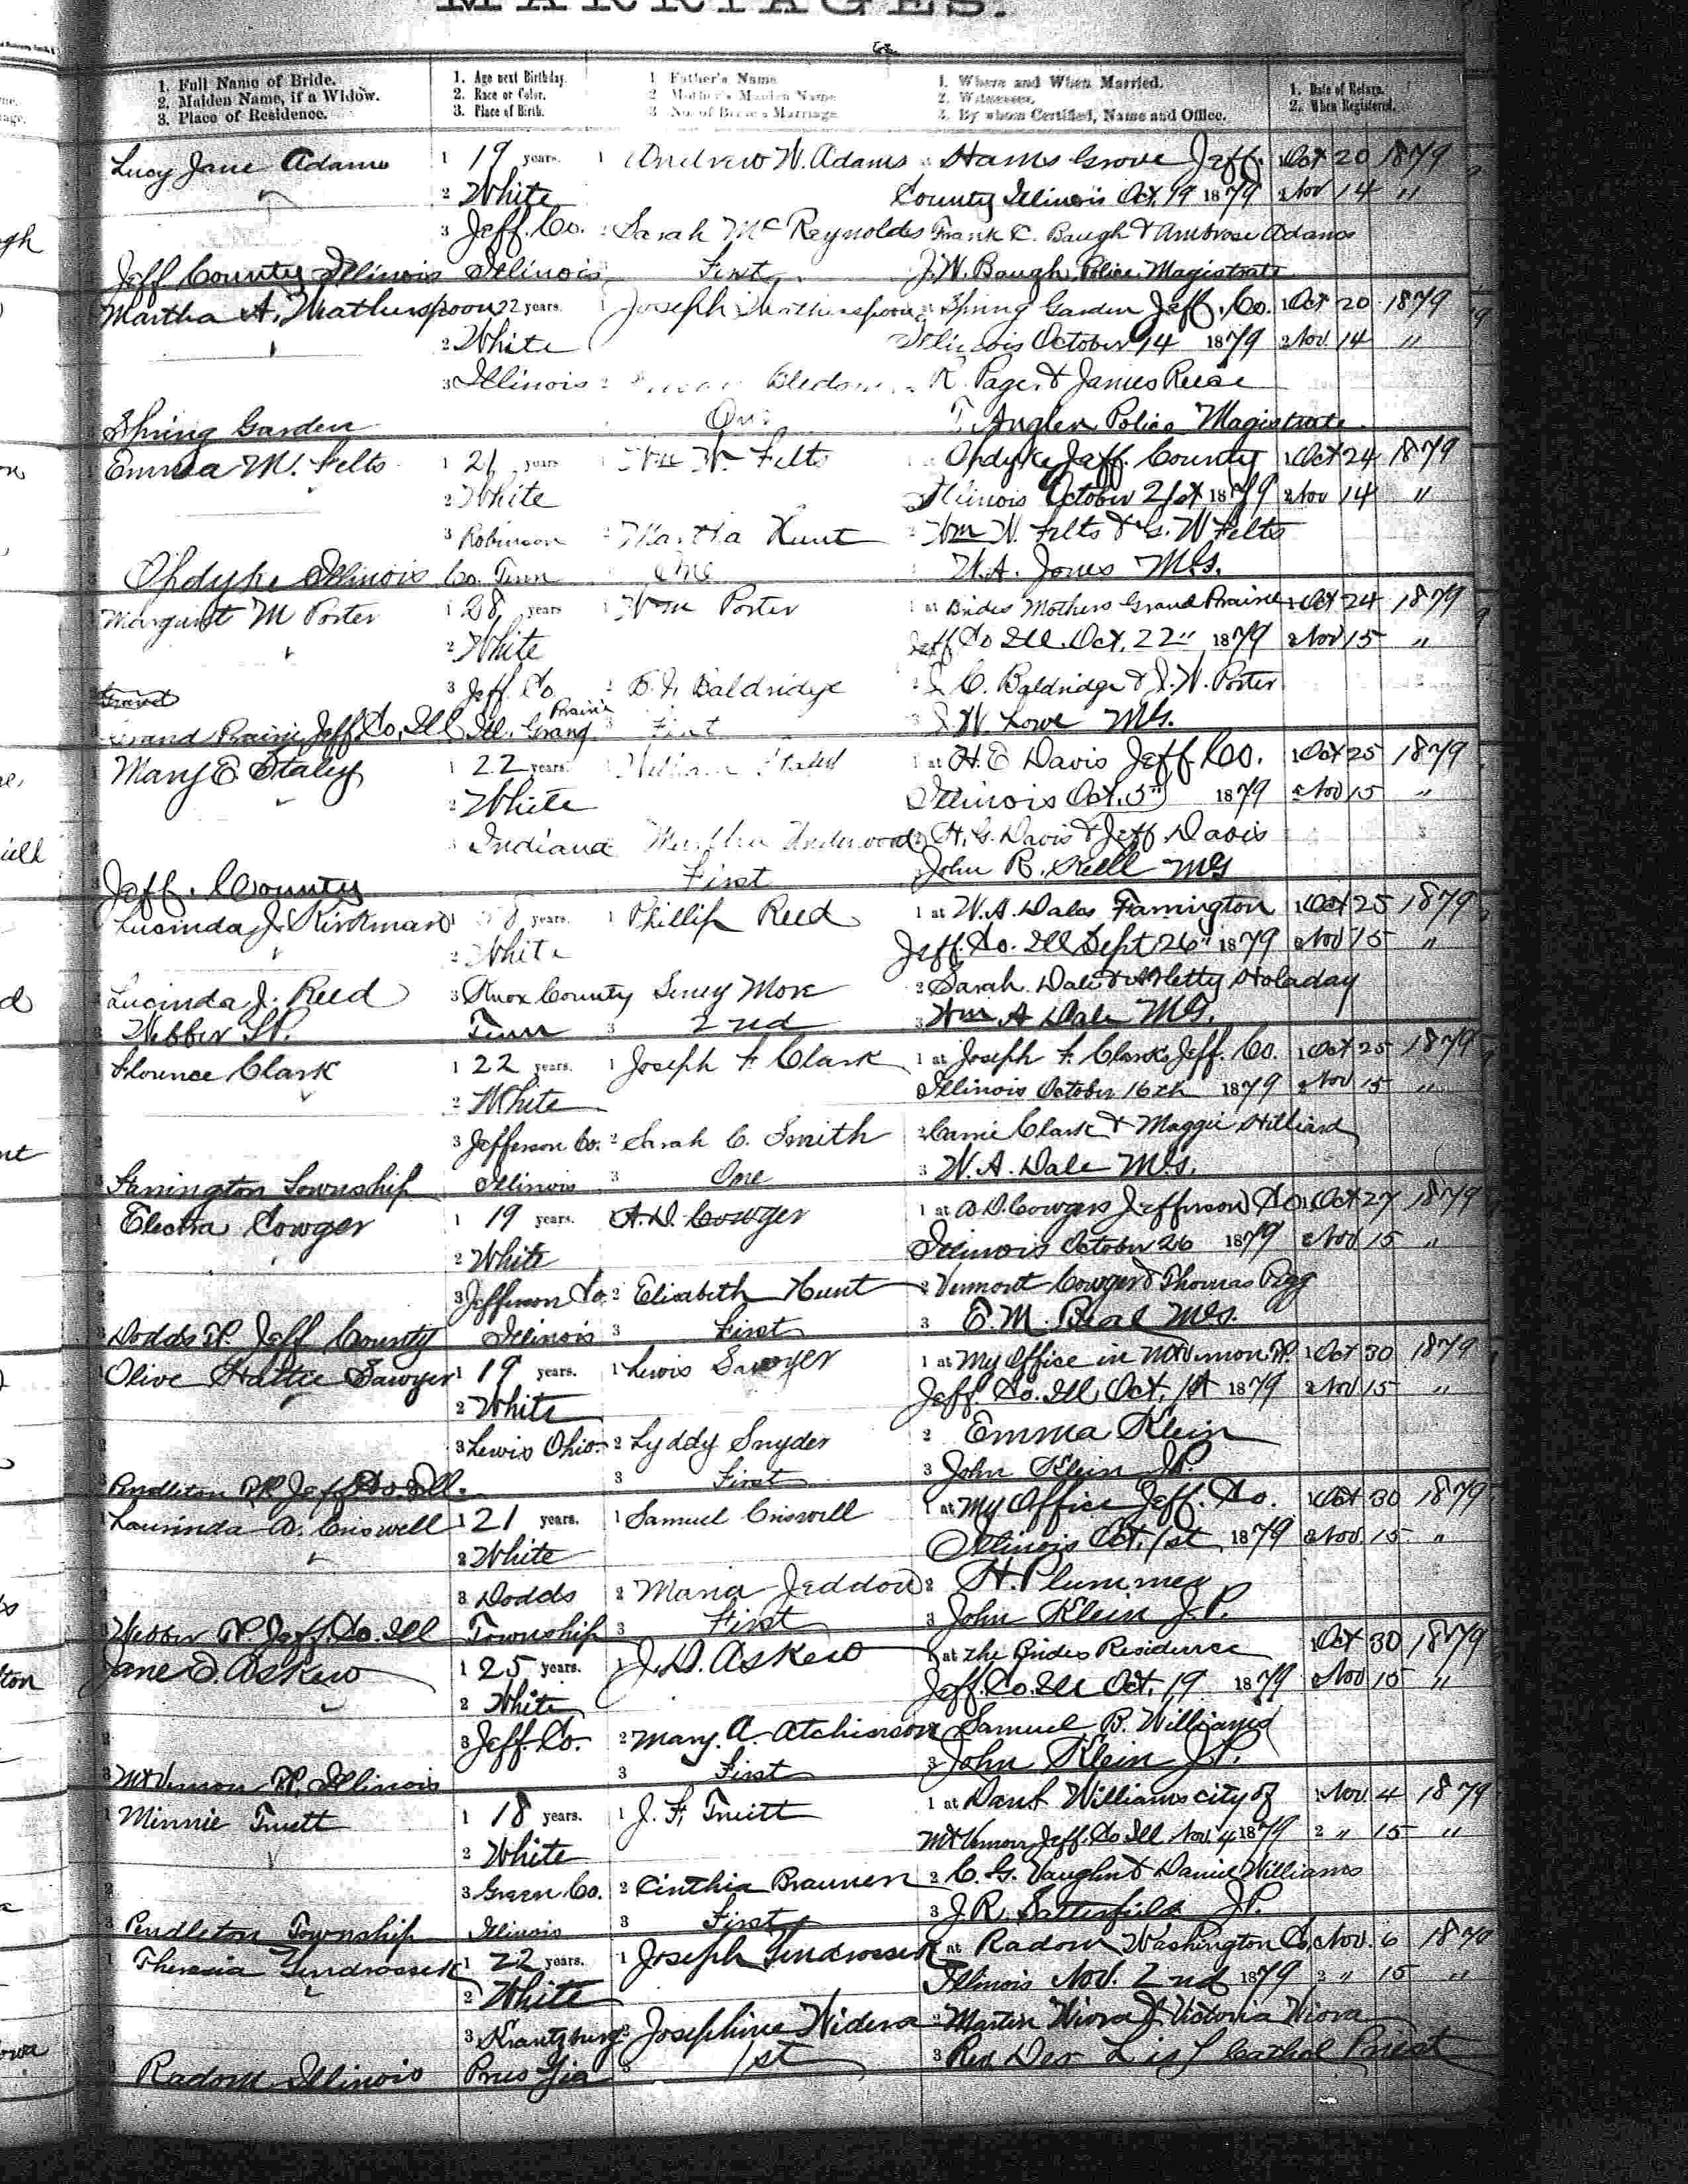 MARRIAGES.
1. Full Name of Bride.
2. Maiden Name, if a Widow.
3. Place of Residence.
1. Age next Birthday.
2. Race or Color.
3. Place of Birth.
1 Father's Name
2 Mother's Maiden Name
3 No. of Bride's Marriage
1. Where and When Married.
2. Witnesses.
3. By whom Certified, Name and Office.
1. Date of Return.
2. When Registered.
Lucy Jane Adams 1 19 years. 1 Andrew W. Adams at Hams Grove Jeff. 1 Oct 20 1879
2 White County Illinois Oct. 19 1879 2 Nov 14 "
3 Jeff. Co. 2 Sarah McReynolds Frank C. Baugh & Ambrose Adams
Jeff County Illinois Illinois First J. W. Baugh Police Magistrate
Martha A. Matherspoon 22 years. 1 Joseph Matherspoon at Spring Garden Jeff. Co. 1 Oct 20 1879
2 White Illinois October 14 1879 2 Nov. 14 "
3 Illinois 2 Bledsoe R. Page & James Reese
Spring Garden One Angler Police Magistrate
Emma M. Felts 1 21 years Wm W. Felts Opdyke Jeff. County 1 Oct 24 1879
2 White Illinois October 21st 1879 2 Nov 14 "
3 Robinson 2 Martha Hunt 2 Wm W. Felts & G. W Felts
Opdyke Illinois Co. Tenn One W. A. Jones M.G.
Margaret M Porter 1 28 years 1 Wm Porter 1 at Brides Mothers Grand Prairie 1 Oct 24 1879
2 White Jeff Co Ill. Oct. 22" 1879 2 Nov 15 "
Grand 3 Jeff. Co 2 D. J. Baldridge 2 J. C. Baldridge & J. W. Porter
Grand Prairie Jeff. Co, Ill Ill. Grand Prairie 3 First 3 J. W. Lowe M.G.
Mary E Staley 1 22 years. 1 William Staley 1 at H. G Davis Jeff Co. 1 Oct 25 1879
2 White Illinois Oct. 5" 1879 2 Nov 15 "
Indiana Martha Underwood 2 H. G. Davis & Jeff Davis
Jeff. County First John R. Kell M.G
Lucinda J. Kirkman 1 8 years. 1 Phillip Reed 1 at W. A. Dales Farrington 1 Oct 25 1879
2 White Jeff. Co. Ill Sept 26" 1879 2 Nov 15 "
Lucinda J. Reed 3 Knox County Seney More 2 Sarah Dale & Hetty Holaday
3 Webber TP. Tenn 3 2nd 3 Wm A Dale M.G.
Florence Clark 1 22 years. 1 Joseph F Clark 1 at Joseph F. Clarks Jeff. Co. 1 Oct 25 1879
2 White Illinois October 16th 1879 2 Nov 15 "
3 Jefferson Co. 2 Sarah C. Smith 2 Carrie Clark & Maggie Hilliard
Farrington Township Illinois 3 One 3 W. A. Dale M.G.
1 Electra Cowger 1 19 years. A. D. Cowger 1 at A. D. Cowgers Jefferson Co 1 Oct 27 1879
2 White Illinois October 26 1879 2 Nov 15 "
3 Jefferson Co. 2 Elizabeth Hunt 2 Vermont Cowger & Thomas Pigg
Dodds TP. Jeff County Illinois 3 First 3 E. M. Beal M.G.
1 Olive Hattie Sawyer 1 19 years. 1 Lewis Sawyer 1 at My Office in Mt Vernon TP. 1 Oct 30 1879
2 White Jeff Co. Ill Oct. 1st 1879 2 Nov. 15 "
3 Lewis Ohio 2 Lyddy Snyder 2 Emma Klein
3 Pendleton TP. Jeff. Co. Ill. 3 First 3 John Klein J.P.
Laurinda A. Criswell 1 21 years. 1 Samuel Criswell 1 at My Office Jeff. Co. 1 Oct 30 1879
2 White Illinois Oct. 1st 1879 2 Nov. 15 "
3 Dodds 2 Maria Jeddow 2 H. Plummer
Webber TP. Jeff. Co. Ill Township 3 First 3 John Klein J.P.
Jane D. Askew 1 25 years. 1 J. D. Askew 1 at The Brides Residence 1 Oct 30 1879
2 White Jeff. Co. Ill Oct. 19 1879 2 Nov 15 "
3 Jeff. Co. 2 Mary. A. Atchinson Samuel B. Williams
3 Mt Vernon TP. Illinois 3 First 3 John Klein J.P.
1 Minnie Truitt 1 18 years. 1 J. F. Truitt 1 at Danl. Williams city of 1 Nov. 4 1879
2 White Mt Vernon Jeff. Co Ill Nov. 4 1879 2 " 15 "
3 Green Co. 2 Cinthia Braunen 2 C. G. Vaughn & Daniel Williams
3 Pendleton Township Illinois 3 First 3 J. R. Satterfield J.P.
1 Theresia Gendrossek 1 22 years. 1 Joseph Gendrossek at Radom Washington Co. Nov. 6 1879
2 White Illinois Nov. 2nd 1879 2 " 15 "
3 Krantzburg 2 Josephine Widera 2 Martin Wiora & Victoria Wiora
3 Radom Illinois Prussia 3 1st 3 Rev. Catholic Priest